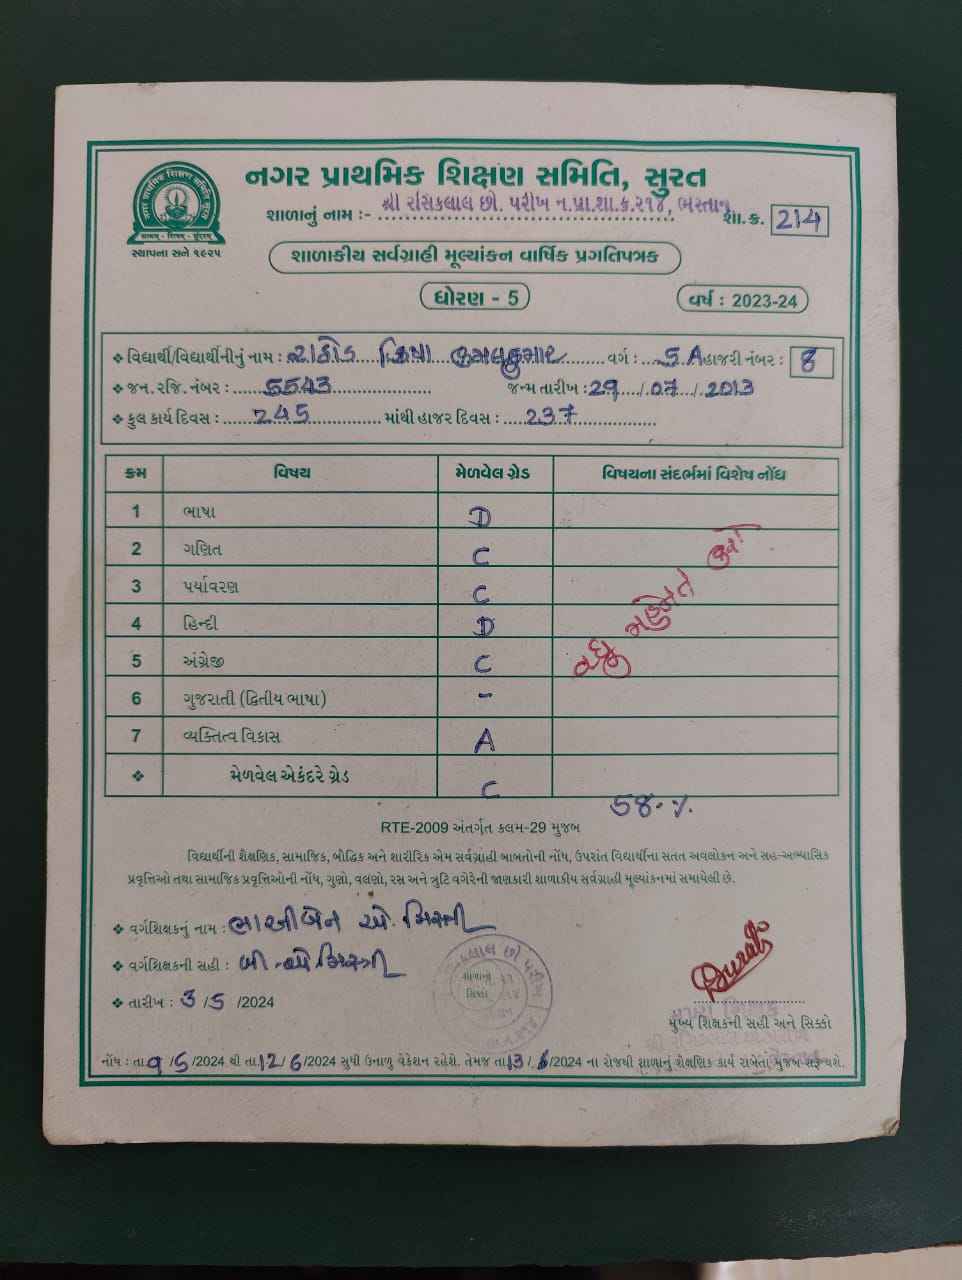 નગર પ્રાથમિક શિક્ષણ સમિતિ, સુરત
શાળાનું નામ :- શ્રી રસિકલાલ છો. પરીખ ન.પ્રા.શા.ક્ર.૨૧૪, ભેસ્તાન શા.ક્ર. 214
સ્થાપના સને ૧૯૨૫
શાળાકીય સર્વગ્રાહી મૂલ્યાંકન વાર્ષિક પ્રગતિપત્રક
ધોરણ - 5
વર્ષ : 2023-24
❖ વિદ્યાર્થી/વિદ્યાર્થીનીનું નામ : રાઠોડ વર્ગ : 5 A હાજરી નંબર : 8
❖ જન. રજિ. નંબર : 5543 જન્મ તારીખ : 29/07/2013
❖ કુલ કાર્ય દિવસ : 245 માંથી હાજર દિવસ : 237
ક્રમ વિષય મેળવેલ ગ્રેડ વિષયના સંદર્ભમાં વિશેષ નોંધ
1 ભાષા D
2 ગણિત C
3 પર્યાવરણ C
4 હિન્દી D
5 અંગ્રેજી C
6 ગુજરાતી (દ્વિતીય ભાષા) -
7 વ્યક્તિત્વ વિકાસ A
❖ મેળવેલ એકંદરે ગ્રેડ C
વધુ મહેનત કરો
58.%
RTE-2009 અંતર્ગત કલમ-29 મુજબ
વિદ્યાર્થીની શૈક્ષણિક, સામાજિક, બૌદ્ધિક અને શારીરિક એમ સર્વગ્રાહી બાબતોની નોંધ, ઉપરાંત વિદ્યાર્થીના સતત અવલોકન અને સહ-અભ્યાસિક
પ્રવૃત્તિઓ તથા સામાજિક પ્રવૃત્તિઓની નોંધ, ગુણો, વલણો, રસ અને ત્રુટિ વગેરેની જાણકારી શાળાકીય સર્વગ્રાહી મૂલ્યાંકનમાં સમાયેલી છે.
❖ વર્ગશિક્ષકનું નામ : એ. મિસ્ત્રી
❖ વર્ગશિક્ષકની સહી : બી. એ. મિસ્ત્રી
❖ તારીખ : 3/5/2024
મુખ્ય શિક્ષકની સહી અને સિક્કો
નોંધ : તા 9/5/2024 થી તા 12/6/2024 સુધી ઉનાળુ વેકેશન રહેશે. તેમજ તા 13/6/2024 ના રોજથી શાળાનું શૈક્ષણિક કાર્ય રાબેતા મુજબ શરૂ થશે.